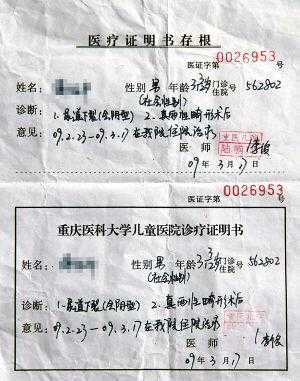 医疗证明书存根
医证字第 0026953 号
姓名: 性别 男 年龄 3岁 门诊 住院 号 562802
(社会性别)
诊断: 1.尿道下裂(会阴型) 2.真两性畸形术后
意见: 09.2.23—09.3.17在我院住院治疗
医师
09年3月17日
医证字第 0026953 号
重庆医科大学儿童医院诊疗证明书
姓名: 性别 男 年龄 3岁 门诊 住院 号 562802
(社会性别)
诊断: 1.尿道下裂(会阴型) 2.真两性畸形术后
意见: 09.2.23—09.3.17在我院住院治疗
医师
09年3月17日